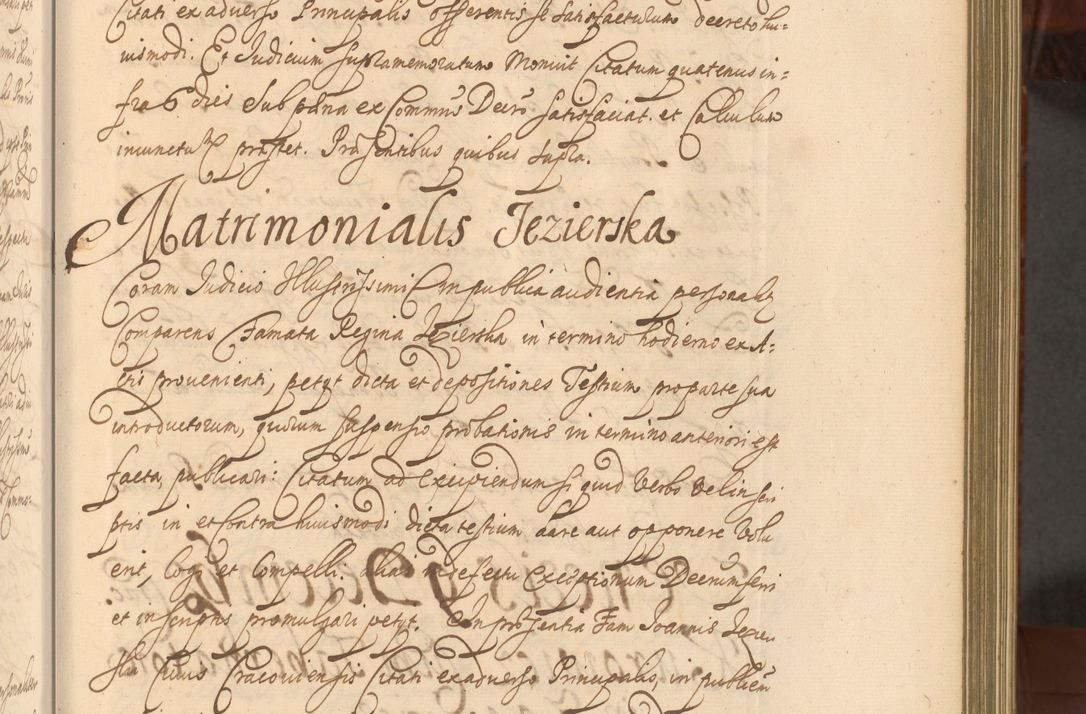 Citati ex adverso Principalis offerentis se satisfacturum decreto hu=
iusmodi. Et Judicium supramemoratum Monuit Citatum quatenus in=
fra 6 dies sub pæna ex Commis Decro satisfaciat. et Calculum
iniunctum præstet. Præsentibus quibus supra.
Matrimonialis Jezierska
Coram Judicio Illustrissimi in publica audientia personalr
Comparens Famata Regina Jezierska in termino hodierno ex A=
ctis provenienti, petyt dicta et depositiones Testium pro parte sua
introductorum, quorum suspensio probationis in termino anteriori est
facta, publicari: Citatum ad excipiendum si quid verbo vel in scri
ptis in et contra huiusmodi dicta testium dare aut opponere volu
erit, cogi et compelli. alias in defectu exceptionum Decrum ferri
et in scriptis promulgari petyt. In præsentia Fam Joannis Jezier
ski Civis Cracoviensis Citati ex adverso Principalis, in publicm